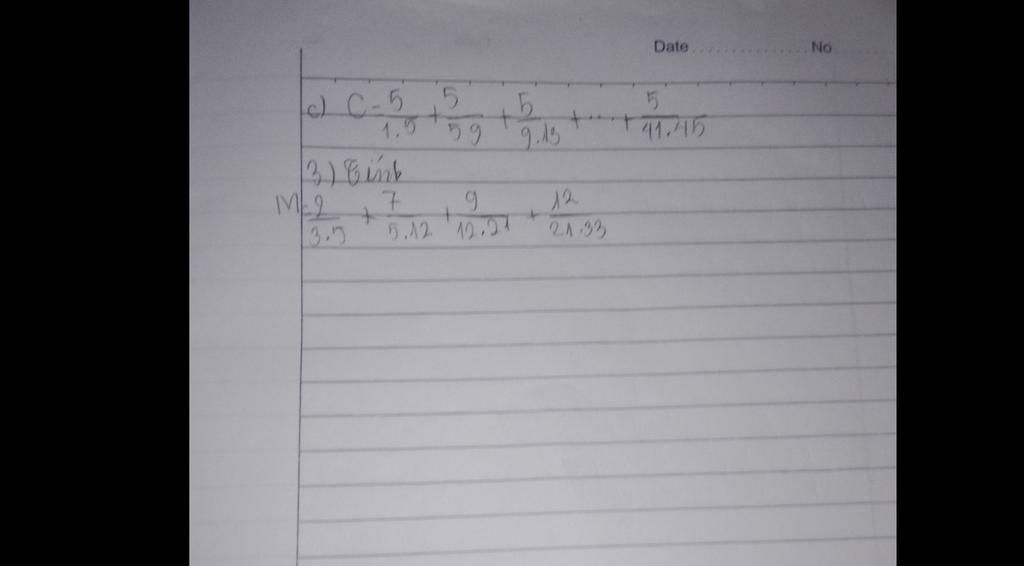 Date ............... No ..........
c) C = 5/1.5 + 5/5 9 + 5/9.13 + .... + 5/41.45
3) Tính
M = 2/3.5 + 7/5.12 + 9/12.21 + 12/21.33